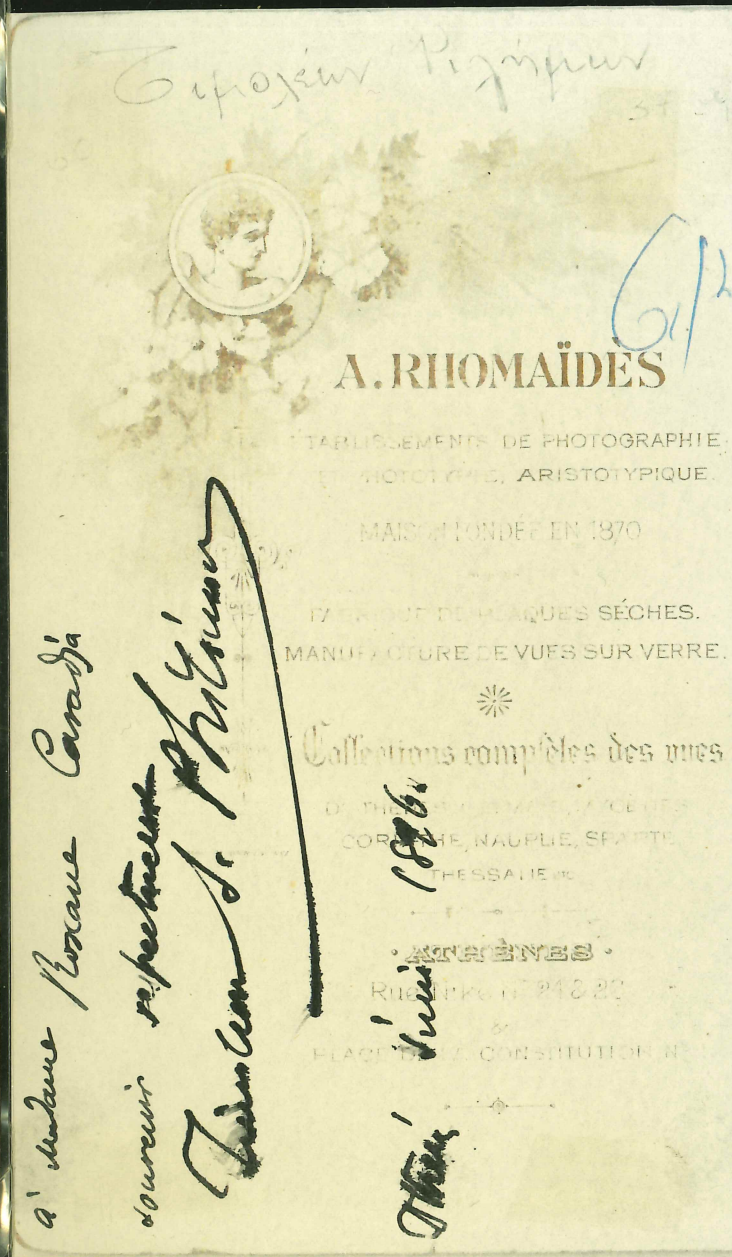 Τιμολέων Φιλήμων
6/2
A. RHOMAÏDÈS
ÉTABLISSEMENTS DE PHOTOGRAPHIE
ET PHOTOTYPIE, ARISTOTYPIQUE.
MAISON FONDÉE EN 1870
FABRIQUE DE PLAQUES SÉCHES.
MANUFACTURE DE VUES SUR VERRE.
Collections complètes des vues
CORINTHE, NAUPLIE, SPARTE
THESSALIE etc
ATHÈNES
Rue Nikis Nº 21 & 23
&
PLACE DE LA CONSTITUTION N
à Madame Roxane Caradja
souvenir respectueux
Timoléon J. Philémon
Athènes Juin 1896.